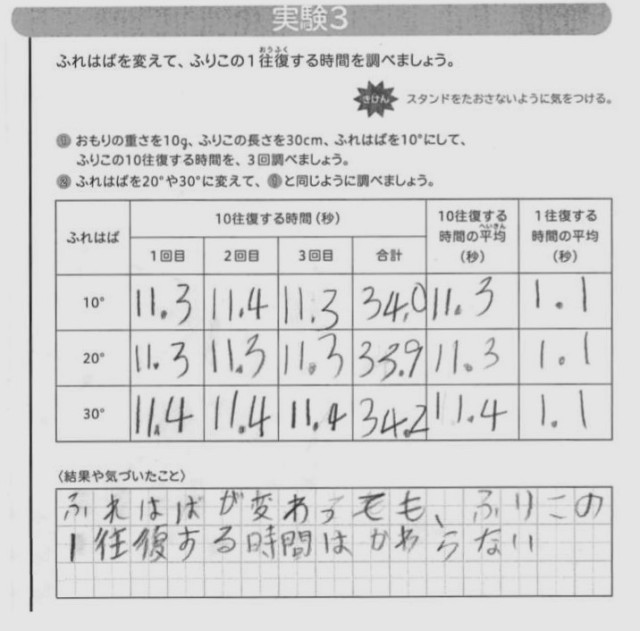 実験3
ふれはばを変えて、ふりこの1往復する時間を調べましょう。
おうふく
きけん スタンドをたおさないように気をつける。
おもりの重さを10g、ふりこの長さを30cm、ふれはばを10°にして、
ふりこの10往復する時間を、3回調べましょう。
ふれはばを20°や30°に変えて、 と同じように調べましょう。
ふれはば 10往復する時間(秒) 10往復する時間の平均(秒) 1往復する時間の平均(秒)
へいきん
1回目 2回目 3回目 合計
10° 11.3 11.4 11.3 34.0 11.3 1.1
20° 11.3 11.3 11.3 33.9 11.3 1.1
30° 11.4 11.4 11.4 34.2 11.4 1.1
〈結果や気づいたこと〉
ふれはばが変わっても、ふりこの
1往復する時間はかわらない